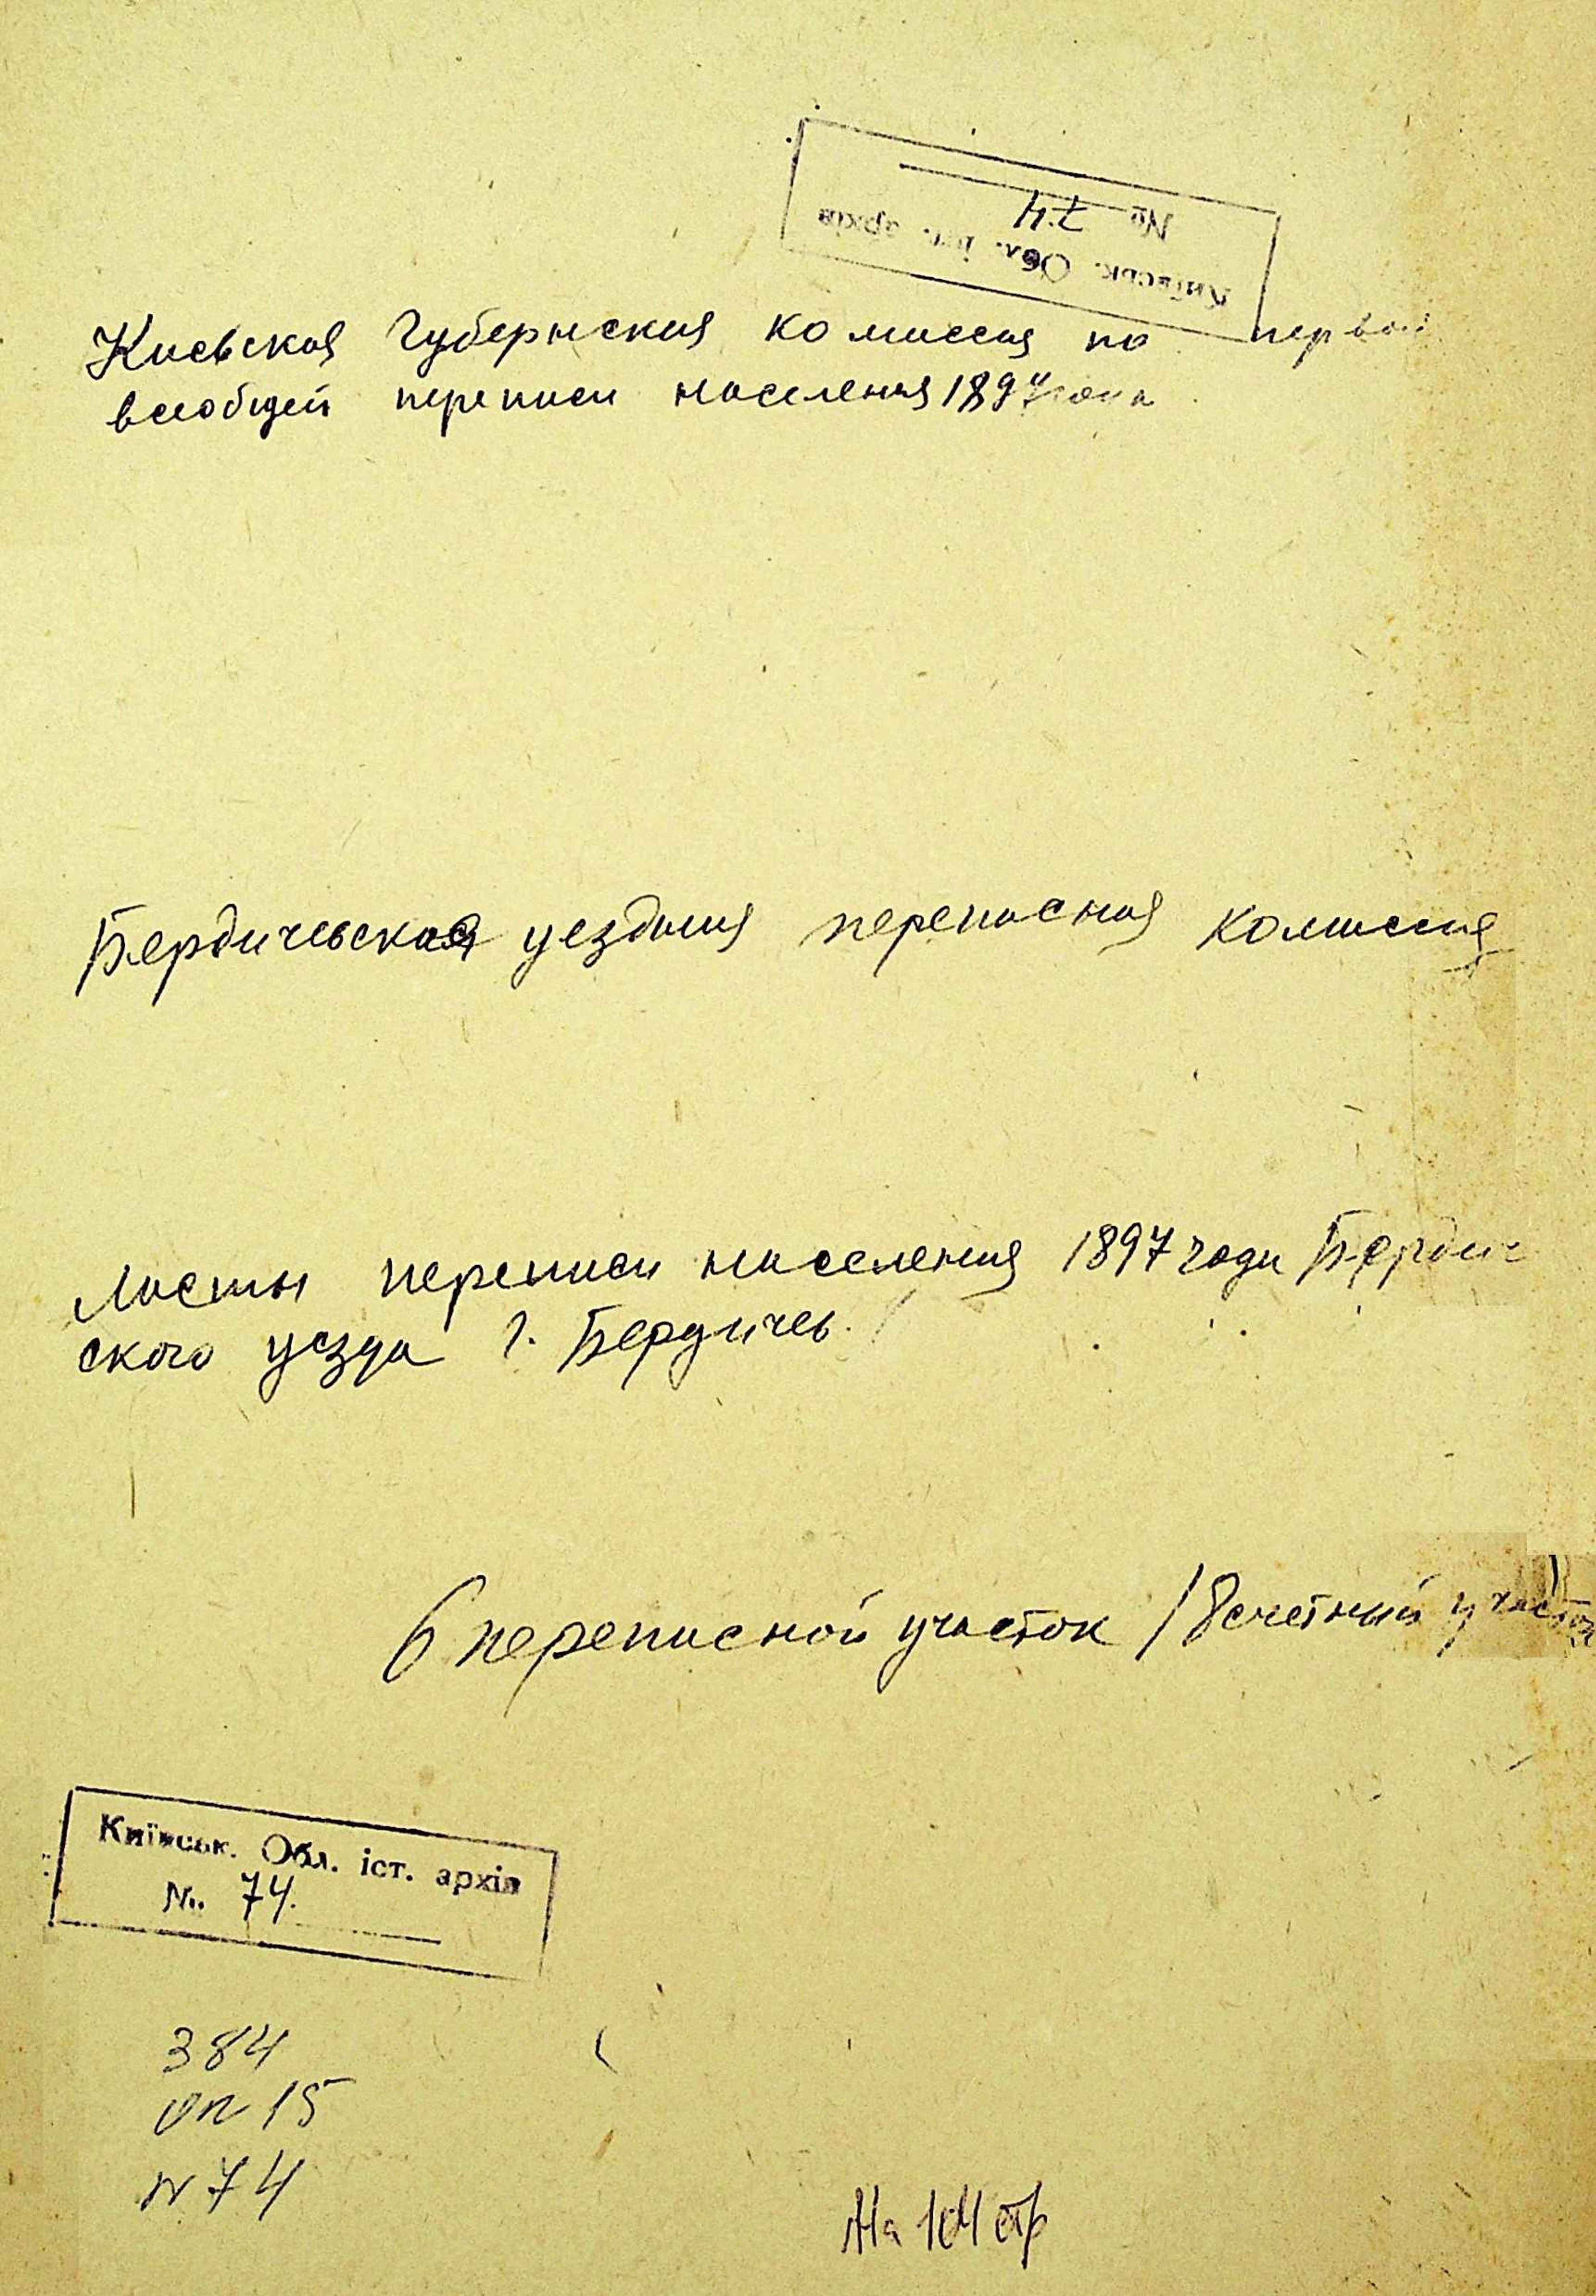 Київськ. Обл. іст. архів
№ 74
Киевская Губернская комиссия по первой
всеобщей переписи населения 1897 года
Бердичевская уездная переписная комиссия
Листы переписи населения 1897 года Бердич
ского уезда г. Бердичев.
6 переписной участок 18 счетный участок
Київськ. Обл. іст. архів
№ 74.
384
оп 15
N 74
На 104 стр